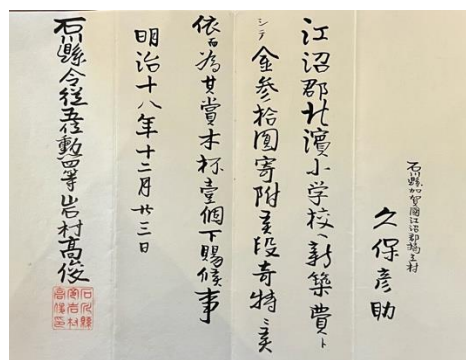 石川縣加賀國江沼郡橋立村
久保彦助
江沼郡北濱小学校ヘ新築費ト
シテ金参拾圓寄附候段奇特ニ候
依而為其賞木杯壹個下賜候事
明治十八年十二月廿三日
石川縣令従五位勲四等岩村髙俊
石川縣
令岩村
高俊印